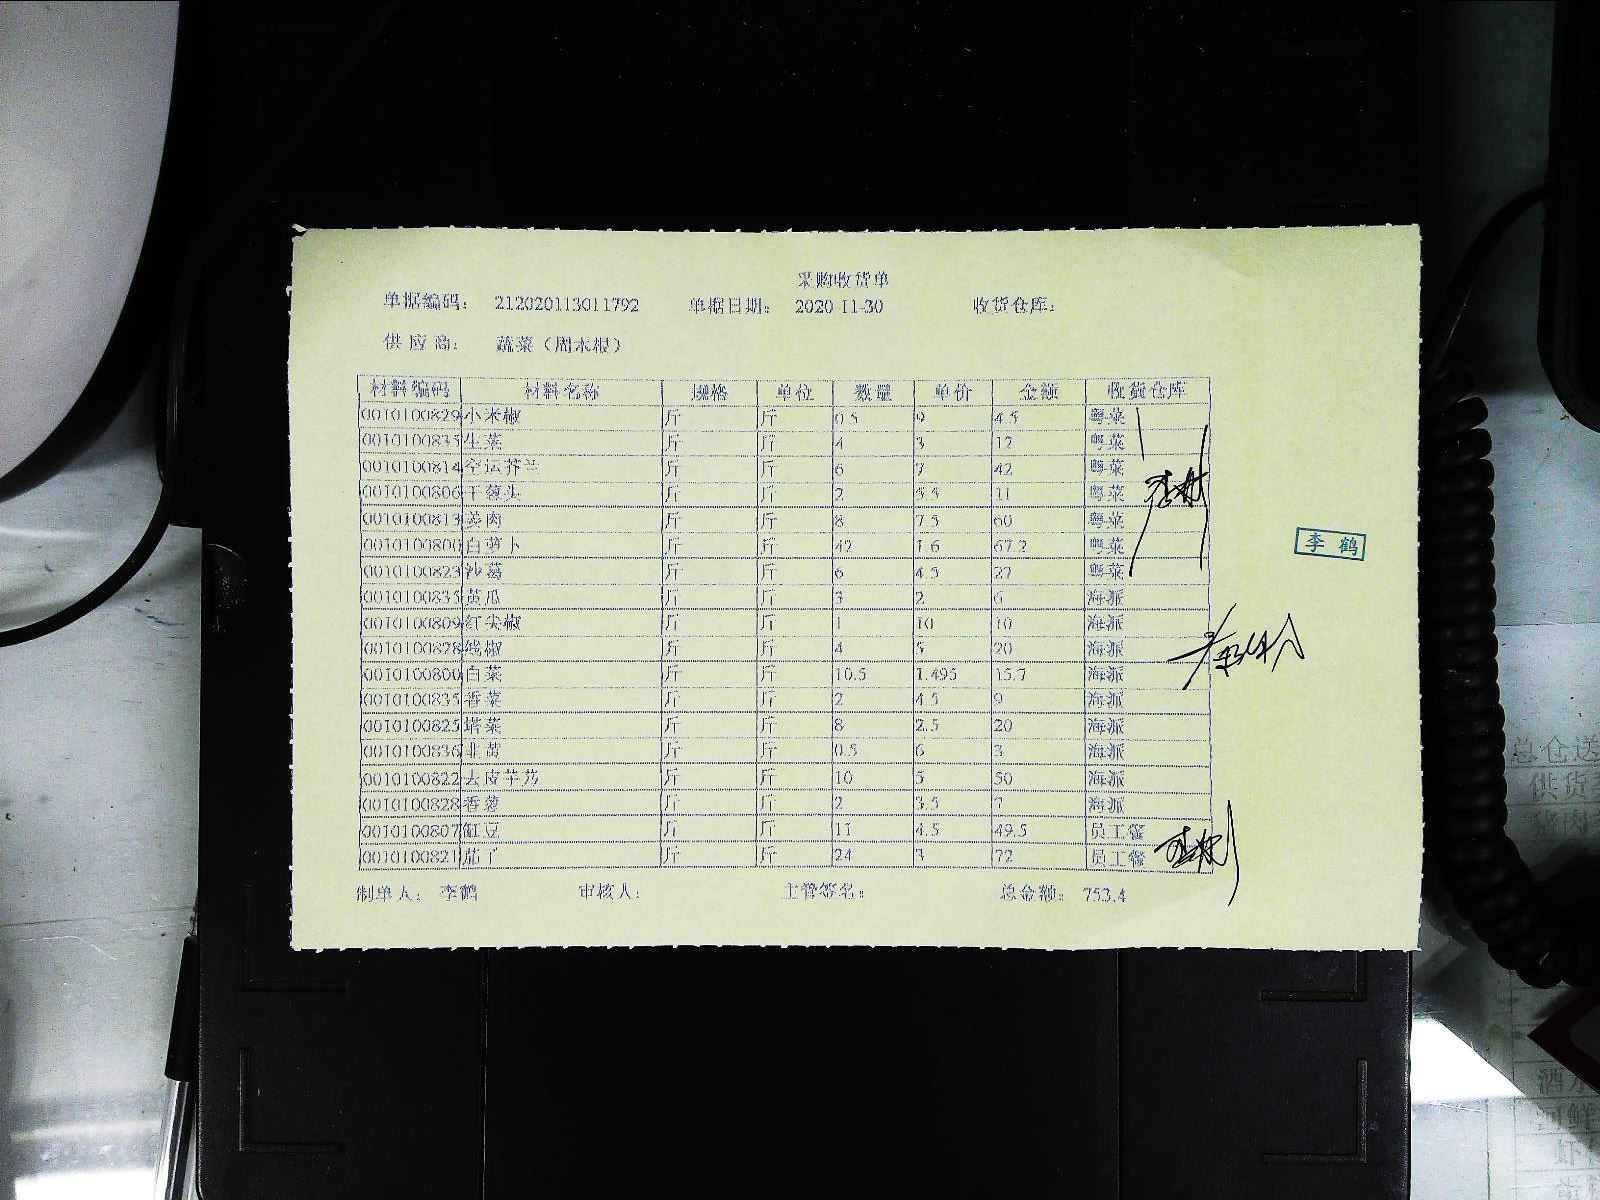 采购收货单
单据编码： 212020113011792 单据日期： 2020-11-30 收货仓库：
供应商： 蔬菜（周本根）
材料编码 材料名称 规格 单位 数量 单价 金额 收货仓库
0010100829 小米椒 斤 斤 0.5 9 4.5 粤菜
0010100835 生菜 斤 斤 4 3 12 粤菜
0010100814 空运芥兰 斤 斤 6 7 42 粤菜
0010100806 干葱头 斤 斤 2 5.5 11 粤菜
0010100813 姜肉 斤 斤 8 7.5 60 粤菜
0010100800 白萝卜 斤 斤 42 1.6 67.2 粤菜
0010100823 沙葛 斤 斤 6 4.5 27 粤菜
0010100835 黄瓜 斤 斤 3 2 6 海派
0010100809 红尖椒 斤 斤 1 10 10 海派
0010100828 线椒 斤 斤 4 5 20 海派
0010100800 白菜 斤 斤 10.5 1.495 15.7 海派
0010100835 香菜 斤 斤 2 4.5 9 海派
0010100825 塔菜 斤 斤 8 2.5 20 海派
0010100836 韭黄 斤 斤 0.5 6 3 海派
0010100822 去皮芋艿 斤 斤 10 5 50 海派
0010100828 香葱 斤 斤 2 3.5 7 海派
0010100807 缸豆 斤 斤 11 4.5 49.5 员工餐
0010100821 茄子 斤 斤 24 3 72 员工餐
制单人： 李鹤 审核人： 主管签名： 总金额： 753.4
李鹤
总仓送
供货
酒水
河鲜